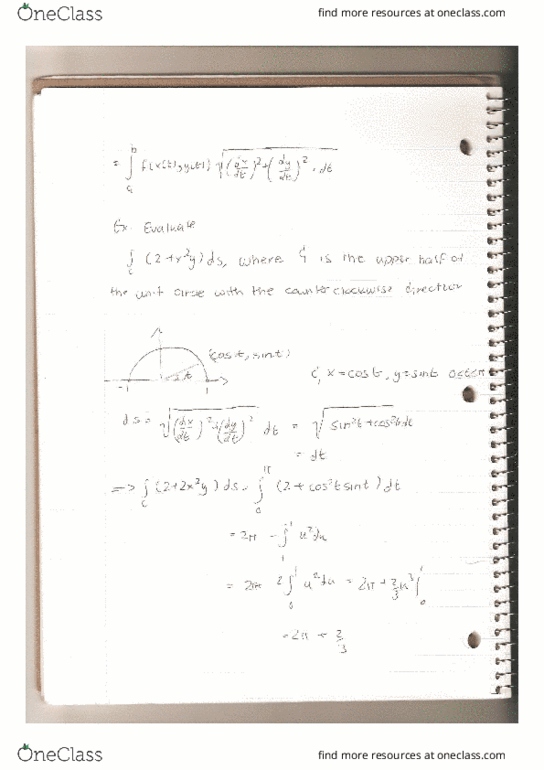 OneClass find more resources at oneclass.com
= ∫_a^b f(x(t), y(t)) √((dx/dt)² + (dy/dt)²) · dt
Ex. Evaluate
∫_C (2+x²y) ds, where C is the upper half of
the unit circle with the counter clockwise direction
(cos t, sin t)
C, x = cost, y = sint 0≤t≤π
t
-1 1
ds = √((dx/dt)² + (dy/dt)²) dt = √(sin²t + cos²t) dt
= dt
=> ∫_C (2+2x²y) ds = ∫_0^π (2 + cos²t sint) dt
= 2π - ∫_1^-1 u² du
= 2π 2∫_0^1 u² du = 2π + 2/3 u³ |_0^1
= 2π + 2/3
OneClass find more resources at oneclass.com